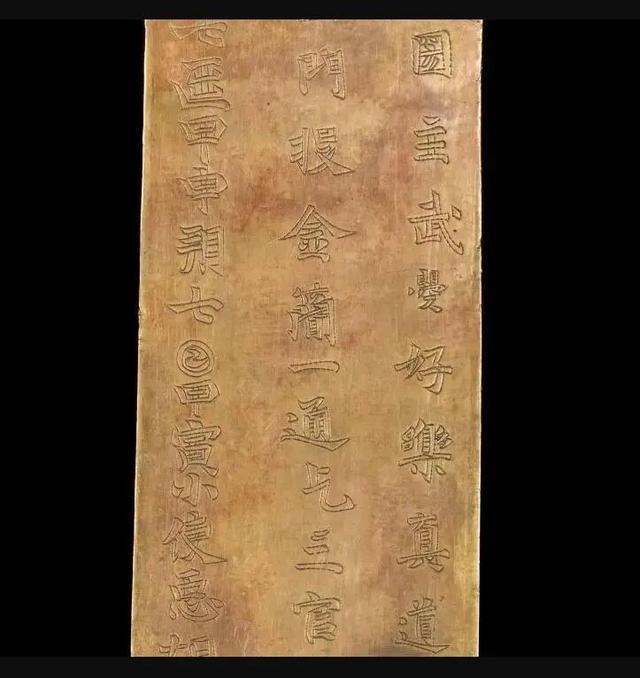 圀主武曌好樂真道
門投金簡一通乞三官
七𠥱甲申朔七𡆠甲寅小使𢘑胡